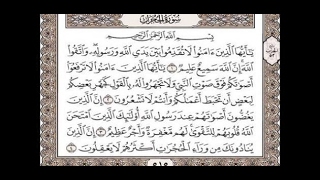 سُورَةُ الحُجُرَاتِ
بِسْمِ اللَّهِ الرَّحْمَٰنِ الرَّحِيمِ
يَٰٓأَيُّهَا ٱلَّذِينَ ءَامَنُوا۟ لَا تُقَدِّمُوا۟ بَيْنَ يَدَىِ ٱللَّهِ وَرَسُولِهِۦ ۖ وَٱتَّقُوا۟
ٱللَّهَ ۚ إِنَّ ٱللَّهَ سَمِيعٌ عَلِيمٌ ١ يَٰٓأَيُّهَا ٱلَّذِينَ ءَامَنُوا۟ لَا تَرْفَعُوٓا۟
أَصْوَٰتَكُمْ فَوْقَ صَوْتِ ٱلنَّبِىِّ وَلَا تَجْهَرُوا۟ لَهُۥ بِٱلْقَوْلِ كَجَهْرِ بَعْضِكُمْ
لِبَعْضٍ أَن تَحْبَطَ أَعْمَٰلُكُمْ وَأَنتُمْ لَا تَشْعُرُونَ ٢ إِنَّ ٱلَّذِينَ
يَغُضُّونَ أَصْوَٰتَهُمْ عِندَ رَسُولِ ٱللَّهِ أُو۟لَٰٓئِكَ ٱلَّذِينَ ٱمْتَحَنَ
ٱللَّهُ قُلُوبَهُمْ لِلتَّقْوَىٰ ۚ لَهُم مَّغْفِرَةٌ وَأَجْرٌ عَظِيمٌ ٣ إِنَّ ٱلَّذِينَ
يُنَادُونَكَ مِن وَرَآءِ ٱلْحُجُرَٰتِ أَكْثَرُهُمْ لَا يَعْقِلُونَ ٤
٥١٥